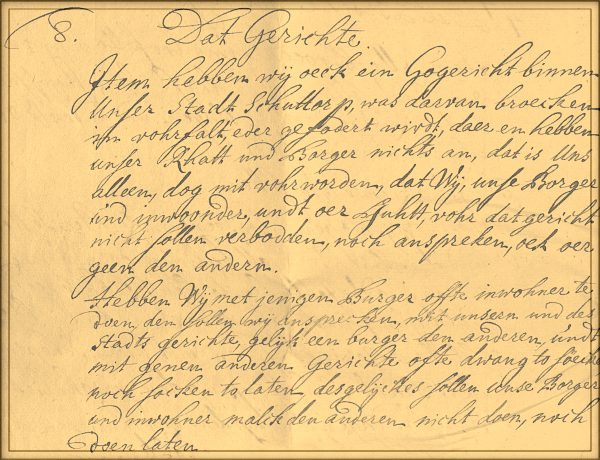 8. Dat Gerichte.
Item hebben wij oeck ein Gogericht binnen
Unser Stadt Schuttorp, was darvan broecken
im vohrfalt, eder gefodert wirdt, daer en hebben
unser Rhatt und Borger nichts an, dat is Uns
alleen, dog mit vohrworden, dat Wij, unse Borger
und inwoonder, undt oer guhtt, vohr dat gericht
nicht sollen verbodden, noch anspreken, oek oer
geen den andern.
Hebben Wij met jenigen Burger ofte inwohner te
doen, den sollen wij ansprecken, mit unsern und des
Stadts gerichte, gelijk een burger dem anderen, undt
mit genen anderen Gerichte ofte dwang to soecken
noch socken to laten, desgelyckes sollen unse Borger
und inwohner malck den anderen nicht doen, noch
doen laten